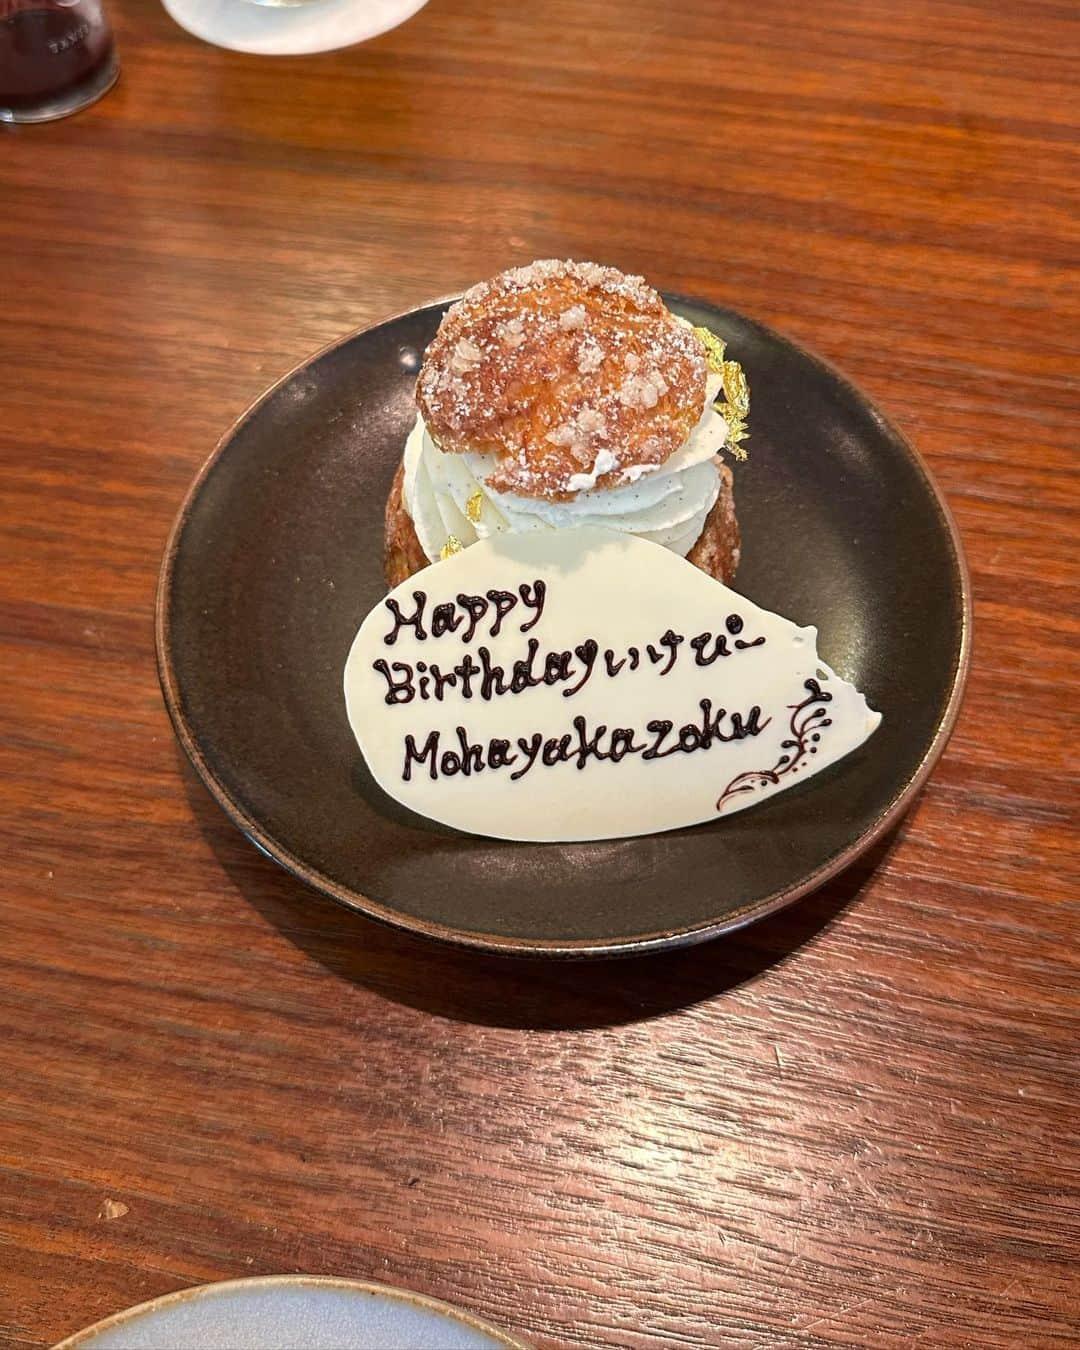 Happy
Birthdayいけぴー
Mohayakazoku